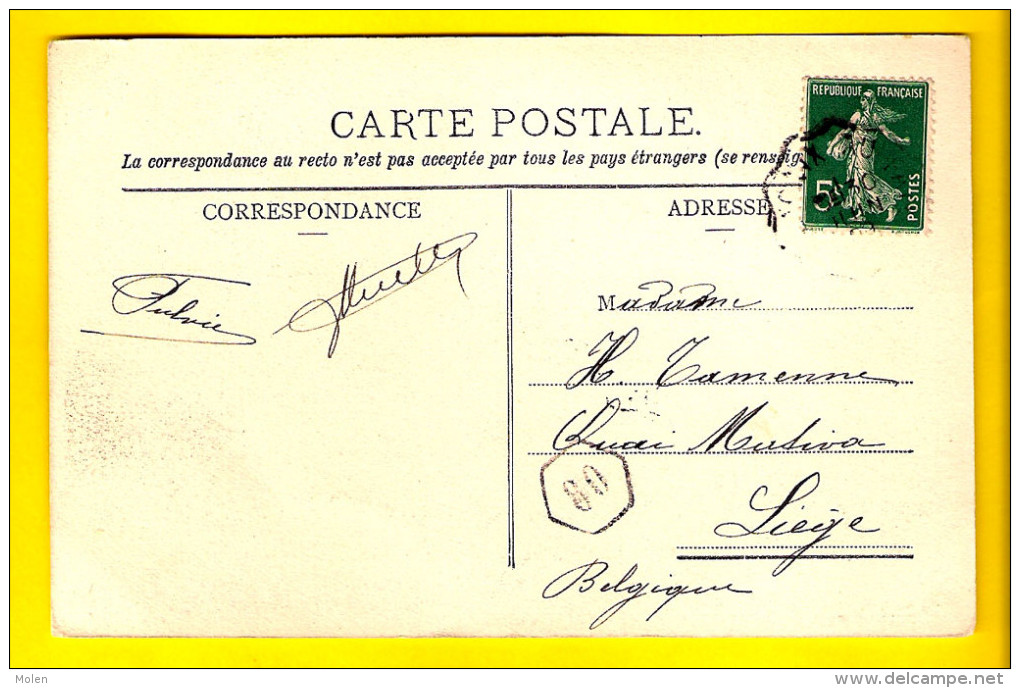 CARTE POSTALE.
La correspondance au recto n'est pas acceptée par tous les pays étrangers (se renseig
RÉPUBLIQUE FRANÇAISE
5c
POSTES
CORRESPONDANCE
ADRESSE
Fulvie
Madame
H. Tamenne
Quai Mativa
Liège
80
Belgique
Molen
www.delcampe.net